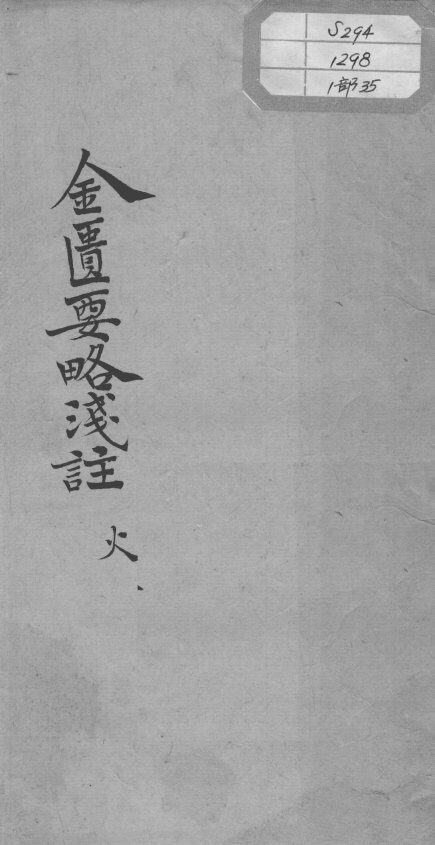 S294
1298
1部35
金匱要略淺註
火